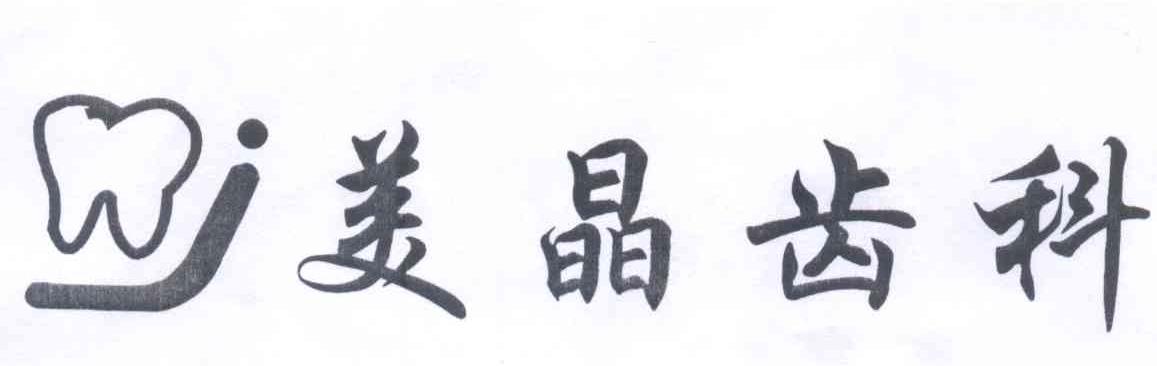 美晶齿科